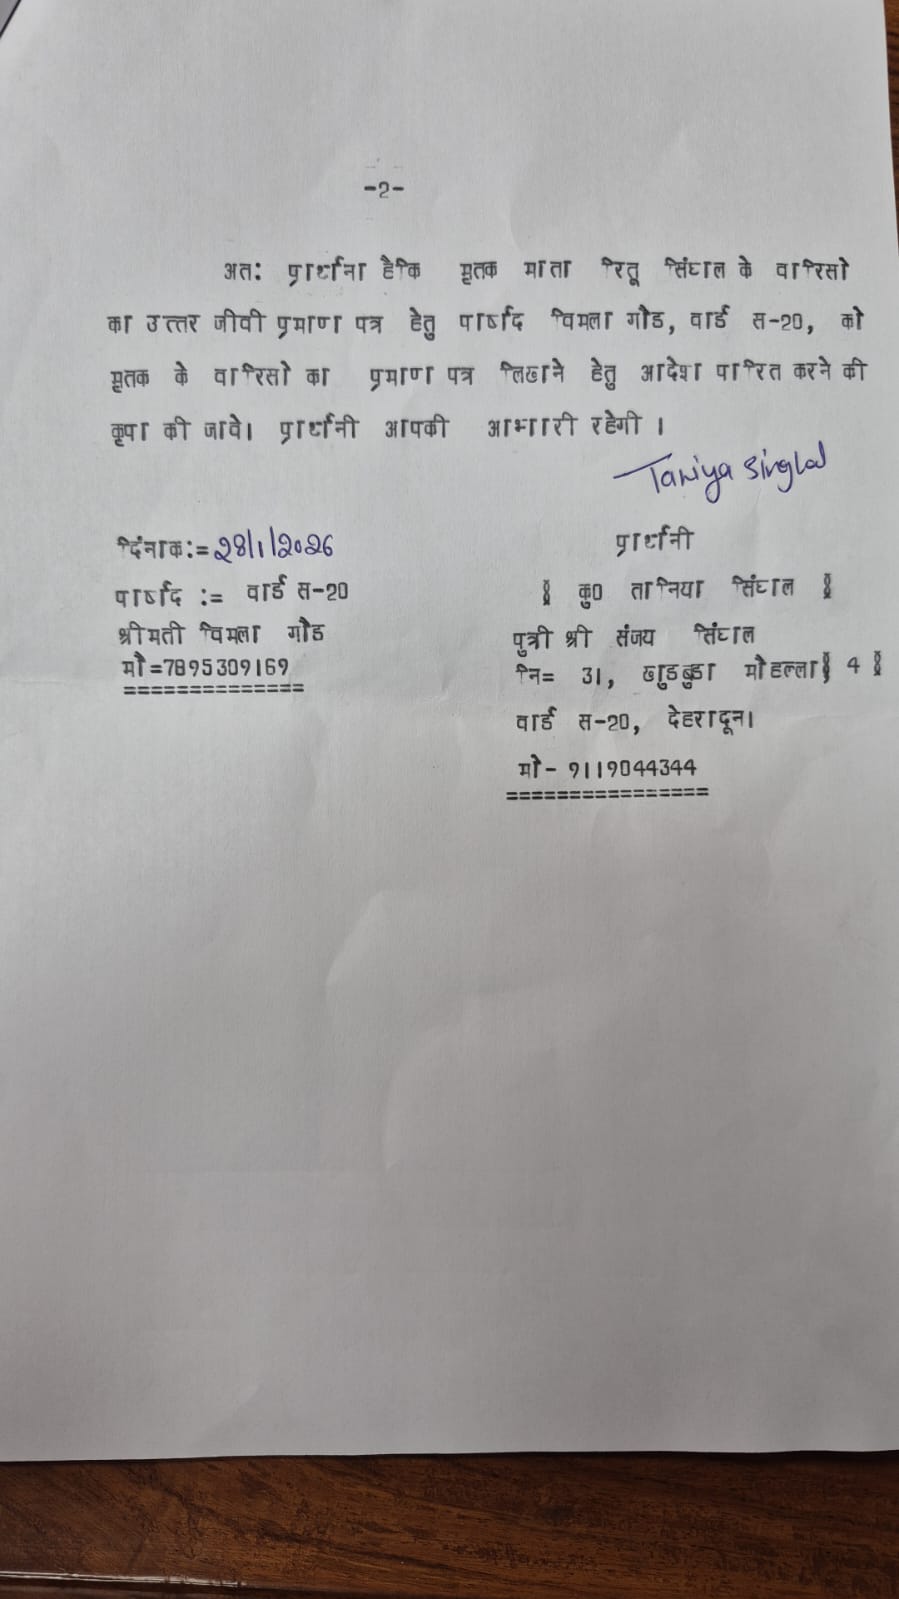 -2-
अतः प्रार्थना हैकि मृतक माता रितू सिंघाल के वारिसो
का उत्तर जीवी प्रमाण पत्र हेतु पार्षद विमला गौड, वार्ड स-20, को
मृतक के वारिसो का प्रमाण पत्र लिखाने हेतु आदेश पारित करने की
कृपा की जावे। प्रार्थनी आपकी आभारी रहेगी ।
Taniya Singhal
दिंनाक:=28/1/2026
पार्षद := वार्ड स-20
श्रीमती विमला गौड
मो=7895309169
==============
प्रार्थनी
( कु0 तानिया सिंघाल )
पुत्री श्री संजय सिंघाल
नि= 31, खुडबुडा मौहल्ला( 4 )
वार्ड स-20, देहरादून।
मो- 9119044344
================